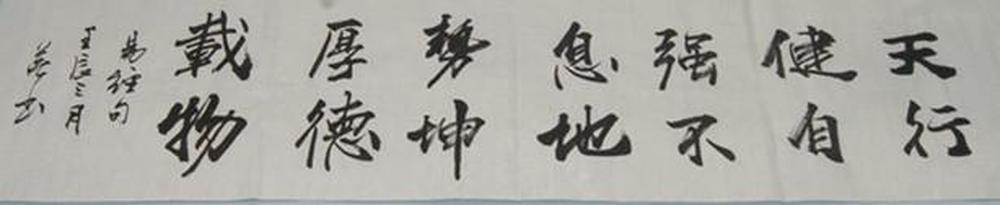 天行
健自
强不
息地
勢坤
厚德
載物
易经句
壬辰三月